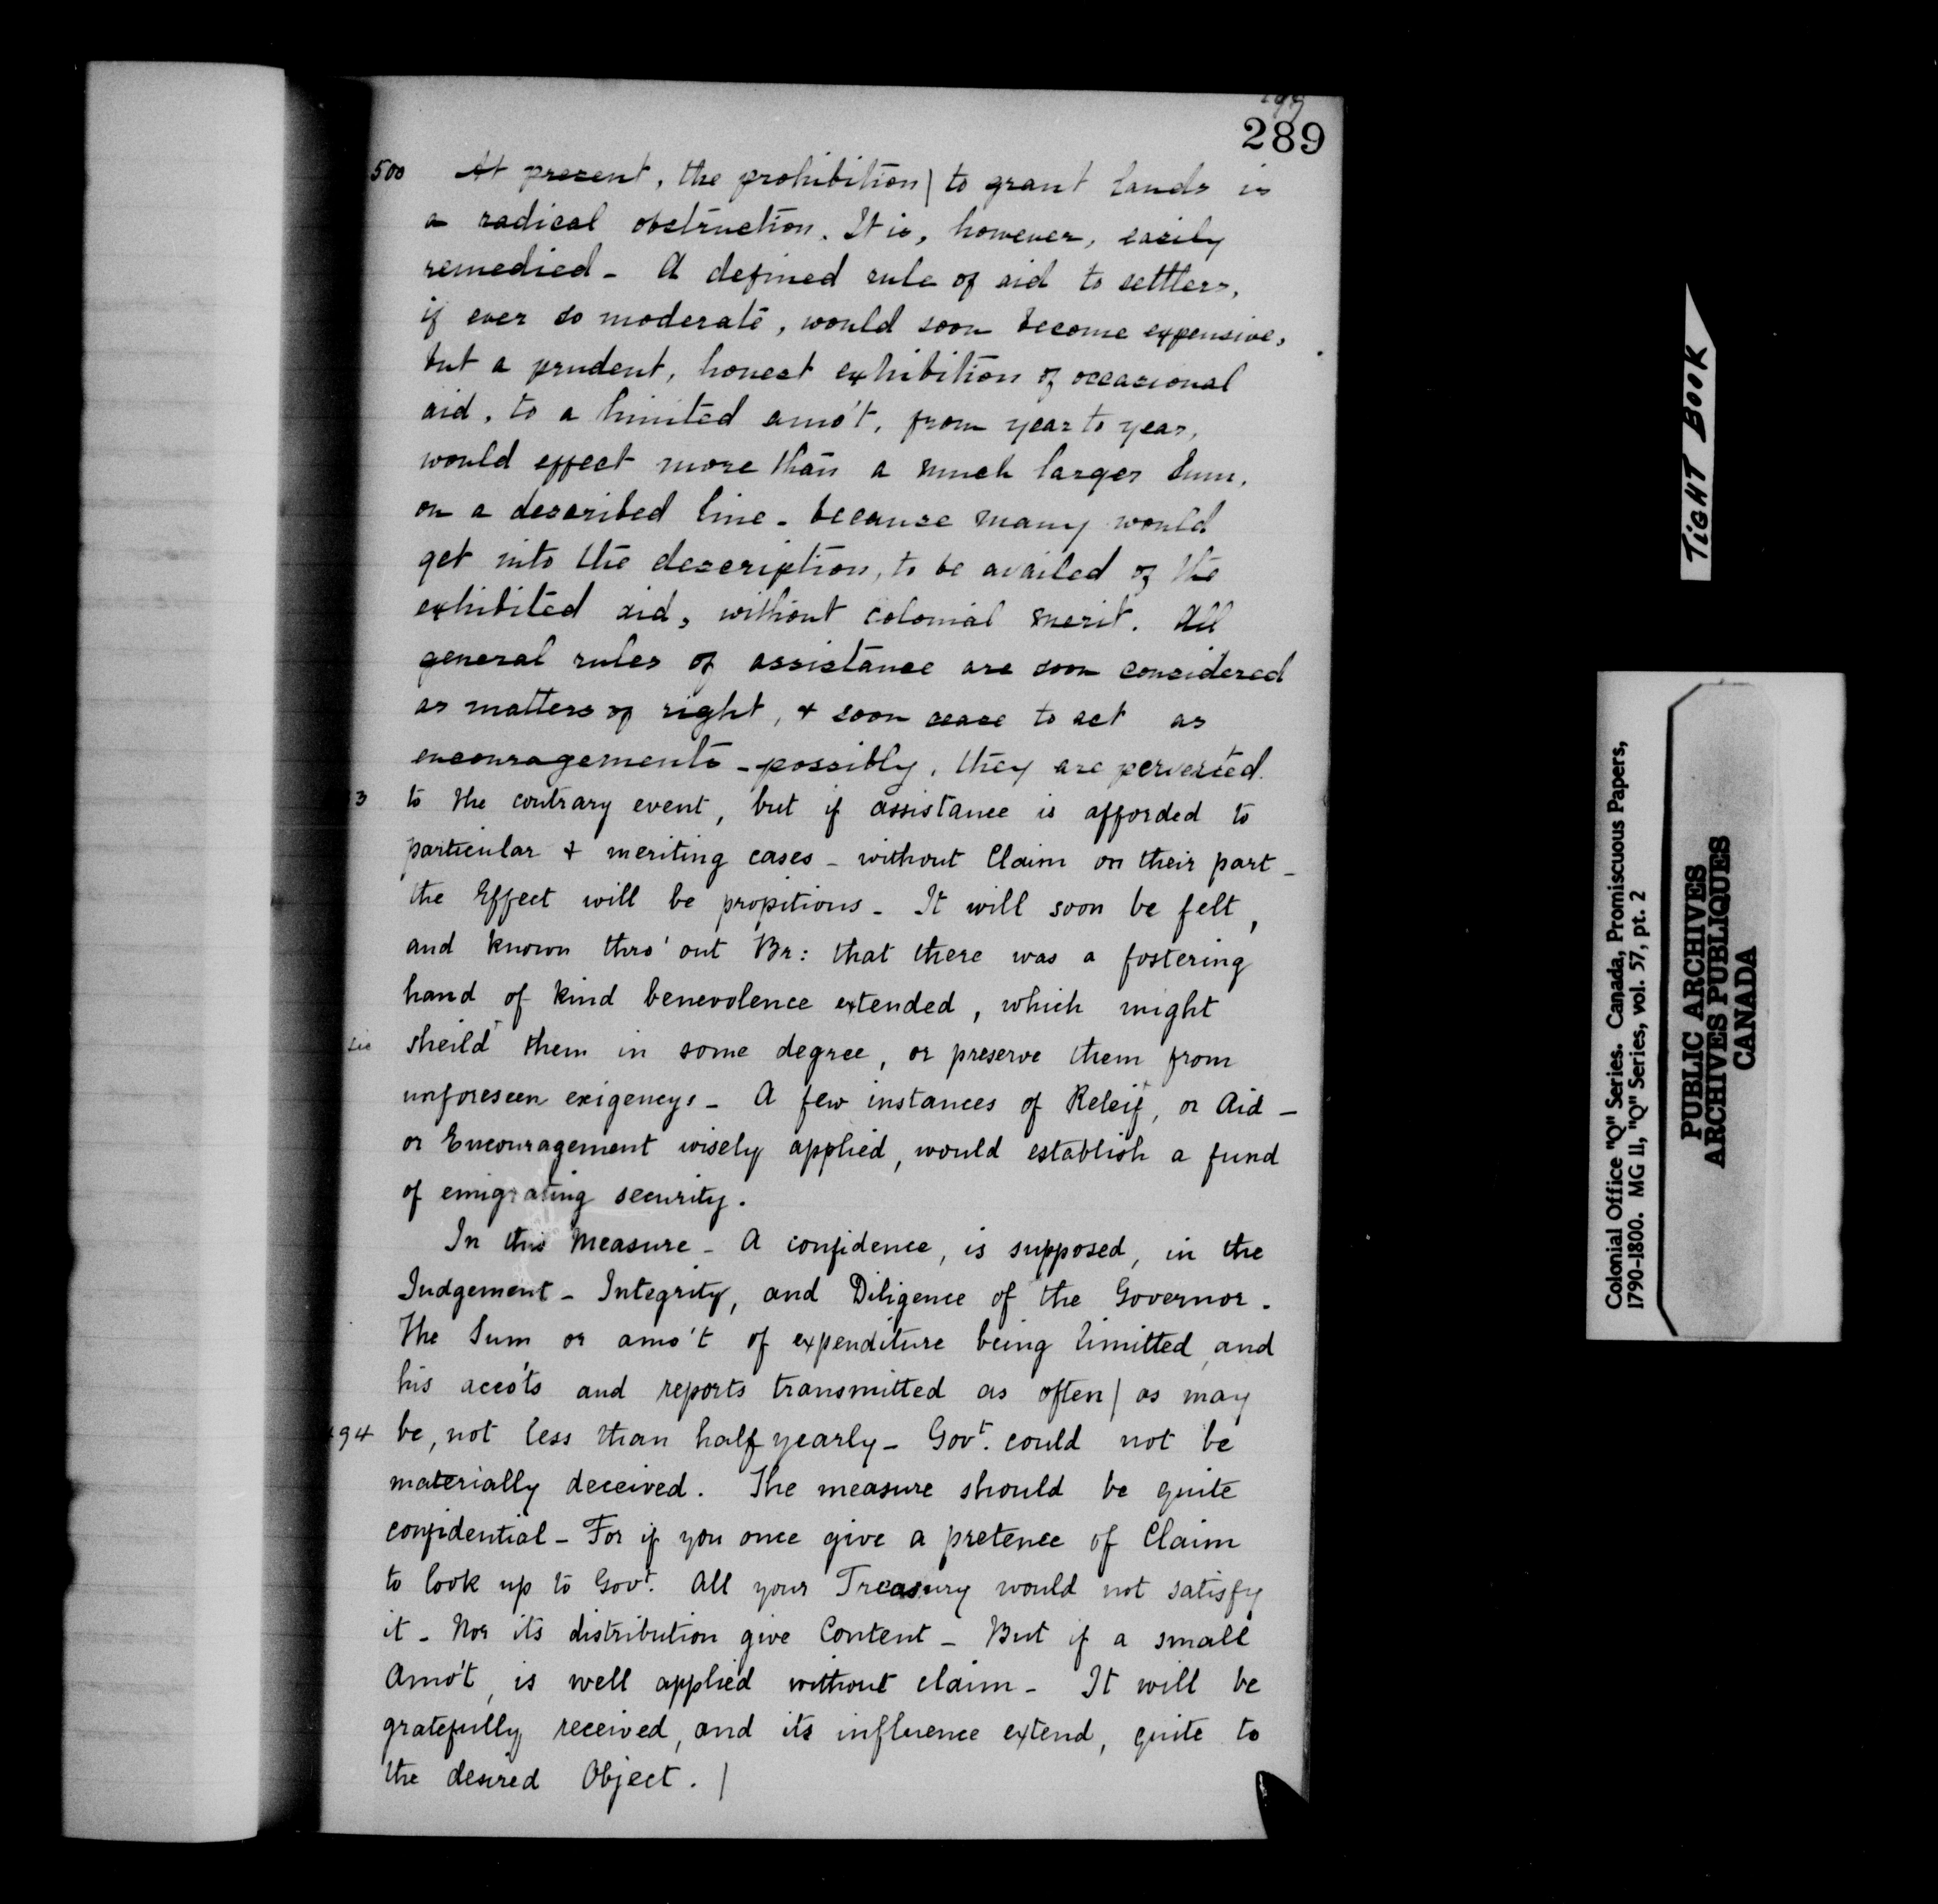 289
500 At present, the prohibition | to grant lands is
a radical obstruction. It is, however, easily
remedied - A defined rule of aid to settlers,
if ever so moderate, would soon become expensive,
but a prudent, honest exhibition of occasional
aid, to a limited amo't, from year to year,
would effect more than a much larger Sum,
on a described line - because many would
get into the description, to be availed of the
exhibited aid, without colonial merit. All
general rules of assistance are soon considered
as matters of right, & soon cease to act as
encouragements - possibly, they are perverted
3 to the contrary event, but if assistance is afforded to
particular & meriting cases - without Claim on their part -
the Effect will be propitious - It will soon be felt,
and known thro' out Br: that there was a fostering
hand of kind benevolence extended, which might
sic sheild them in some degree, or preserve them from
unforeseen exigencys - A few instances of Releif, or Aid -
or Encouragement wisely applied, would establish a fund
of emigrating security.
In this Measure - A confidence, is supposed, in the
Judgement - Integrity, and Diligence of the Governor.
The Sum or amo't of expenditure being limitted, and
his acco'ts and reports transmitted as often | as may
494 be, not less than half yearly - Govt. could not be
materially deceived. The measure should be quite
confidential - For if you once give a pretence of Claim
to look up to Govt. All your Treasury would not satisfy
it - Nor its distribution give Content - But if a small
Amo't, is well applied without claim - It will be
gratefully received, and its influence extend, quite to
the desired Object. |
TIGHT BOOK
Colonial Office "Q" Series. Canada, Promiscuous Papers,
1790-1800. MG 11, "Q" Series, vol. 57, pt. 2
PUBLIC ARCHIVES
ARCHIVES PUBLIQUES
CANADA